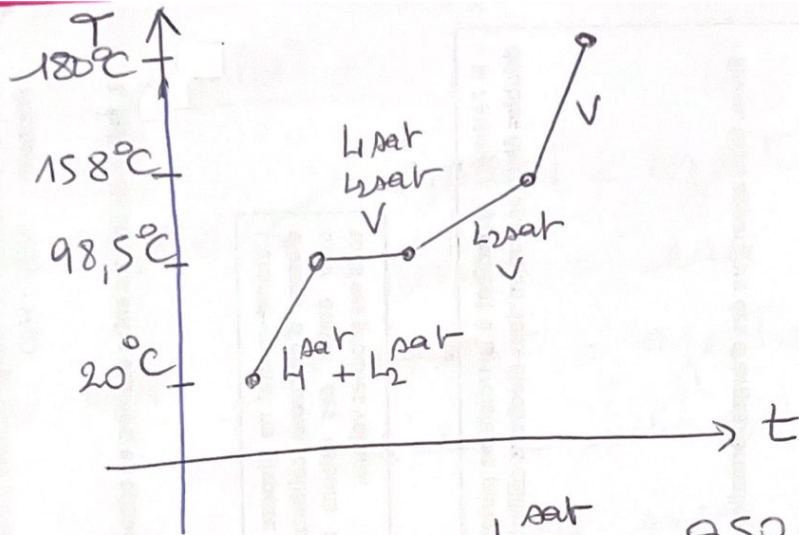 T
180°C
158°C
98,5°C
20°C
L1sat
L2sat
V
V
L2sat
V
L1^sat + L2^sat
t
sat